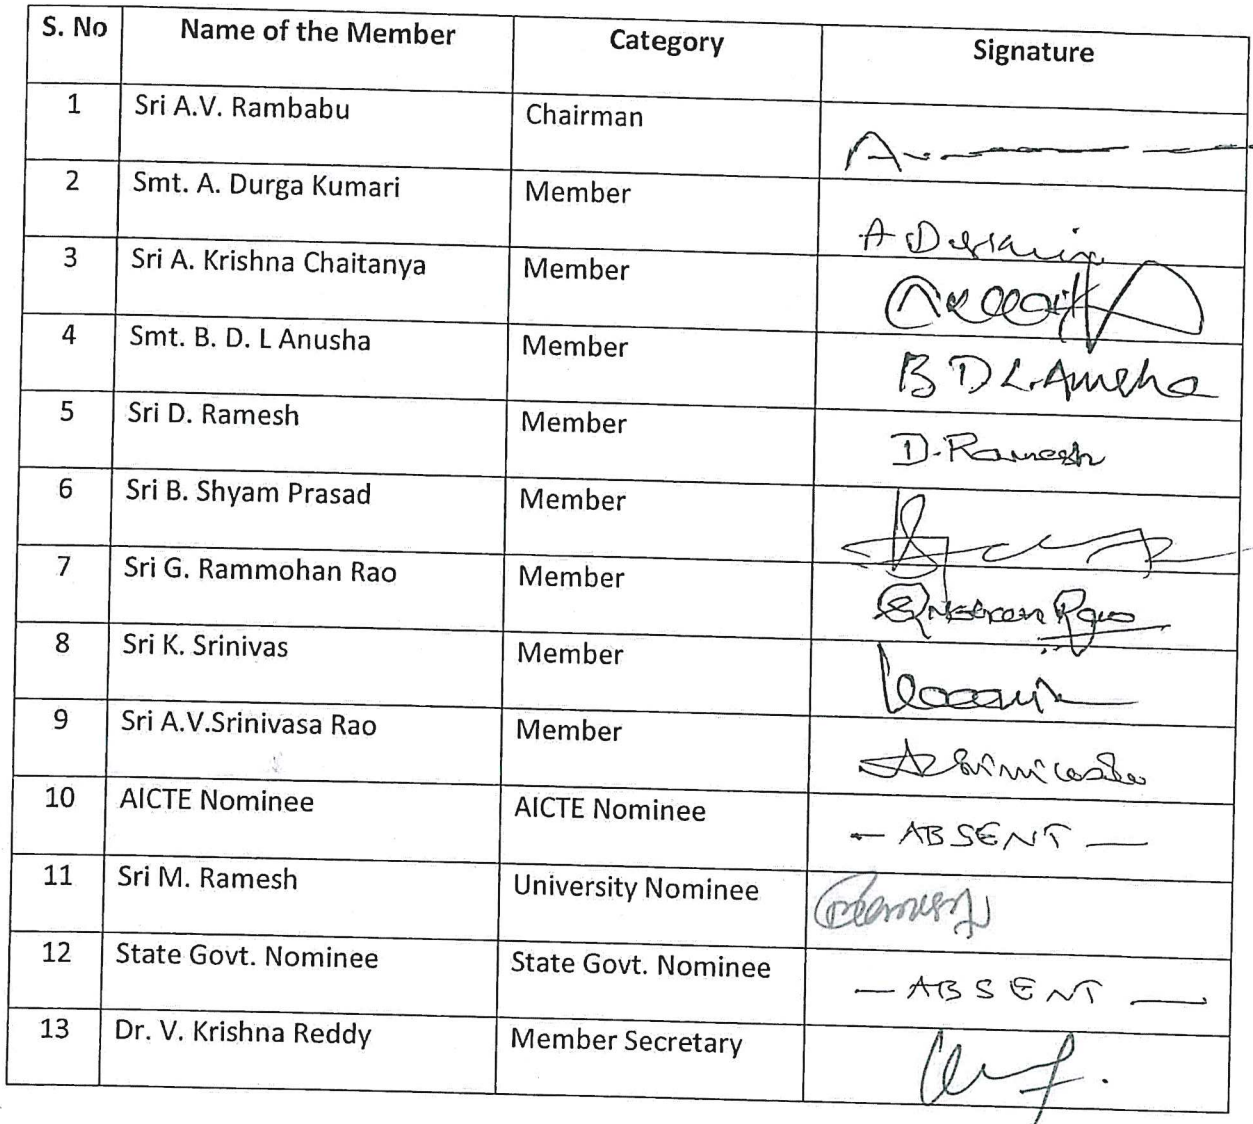 S. No Name of the Member Category Signature
1 Sri A.V. Rambabu Chairman
2 Smt. A. Durga Kumari Member
3 Sri A. Krishna Chaitanya Member
4 Smt. B. D. L Anusha Member B D L. Anusha
5 Sri D. Ramesh Member D. Ramesh
6 Sri B. Shyam Prasad Member
7 Sri G. Rammohan Rao Member
8 Sri K. Srinivas Member
9 Sri A.V.Srinivasa Rao Member
10 AICTE Nominee AICTE Nominee - ABSENT -
11 Sri M. Ramesh University Nominee
12 State Govt. Nominee State Govt. Nominee - ABSENT -
13 Dr. V. Krishna Reddy Member Secretary